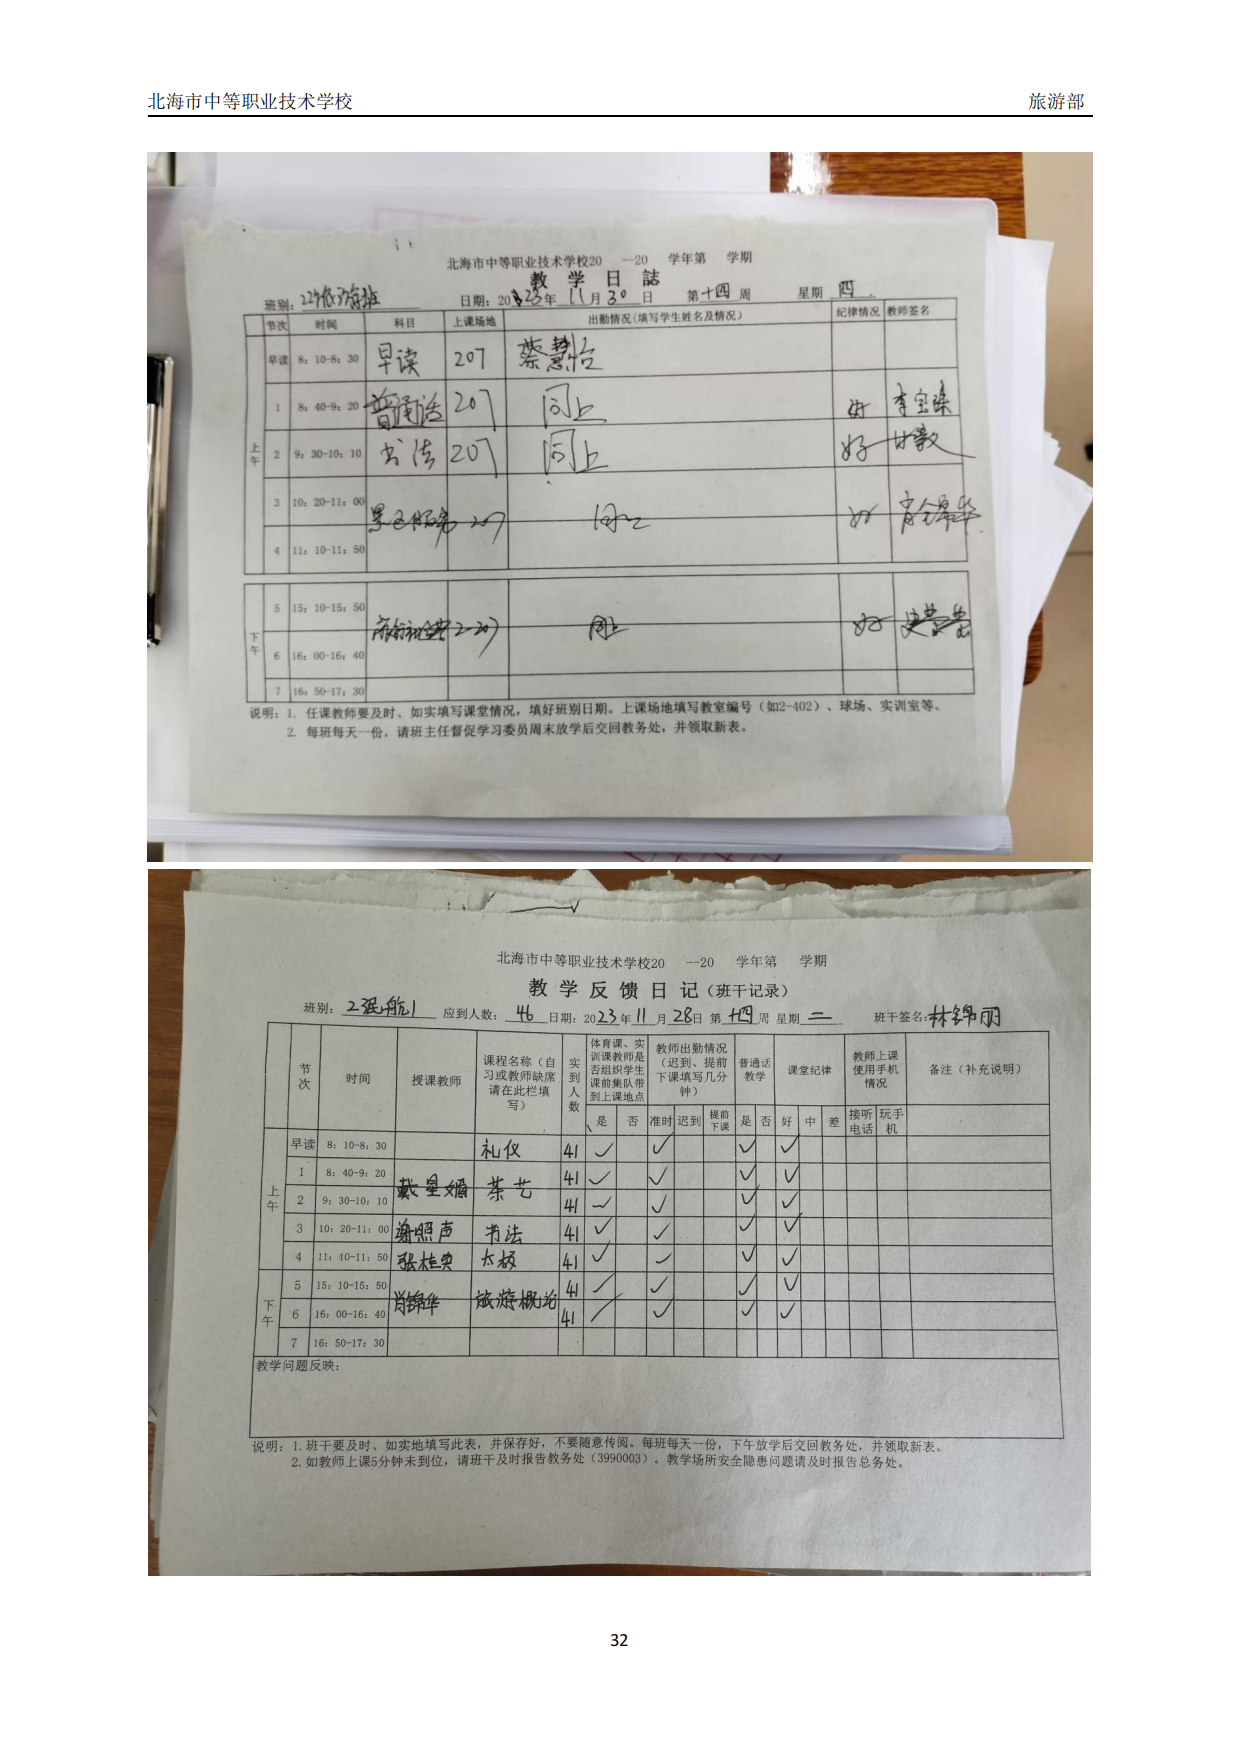 北海市中等职业技术学校 旅游部
北海市中等职业技术学校20 --20 学年第 学期
教 学 日 誌
班别: 日期: 2023年 11月 30日 第十四周 星期 四
节次 时间 科目 上课场地 出勤情况(填写学生姓名及情况) 纪律情况 教师签名
早读 8: 10-8: 30 早读 207 蔡慧怡
上午
1 8: 40-9: 20 普通话 207 同上 好
2 9: 30-10: 10 书法 207 同上 好
3 10: 20-11: 00
207 同上 好 肖锦华
4 11: 10-11: 50
下午
5 15: 10-15: 50
2-207 同上 好
6 16: 00-16: 40
7 16: 50-17: 30
说明: 1. 任课教师要及时、如实填写课堂情况，填好班别日期。上课场地填写教室编号（如2-402）、球场、实训室等。
2. 每班每天一份，请班主任督促学习委员周末放学后交回教务处，并领取新表。
北海市中等职业技术学校20 --20 学年第 学期
教 学 反 馈 日 记（班干记录）
班别: 22民航1 应到人数: 46 日期: 2023年11月28日 第十四周 星期二 班干签名: 林锦丽
节次 时间 授课教师 课程名称（自习或教师缺席请在此栏填写） 实到人数 体育课、实训课教师是否组织学生课前集队带到上课地点 教师出勤情况（迟到、提前下课填写几分钟） 普通话教学 课堂纪律 教师上课使用手机情况 备注（补充说明）
是 否 准时 迟到 提前下课 是 否 好 中 差 接听电话 玩手机
早读 8: 10-8: 30 礼仪 41 ✓ ✓ ✓ ✓
上午
1 8: 40-9: 20 41 ✓ ✓ ✓ ✓
戴星媚 茶艺
2 9: 30-10: 10 41 ✓ ✓ ✓ ✓
3 10: 20-11: 00 谢照声 书法 41 ✓ ✓ ✓ ✓
4 11: 10-11: 50 张桂实 太极 41 ✓ ✓ ✓ ✓
下午
5 15: 10-15: 50 41 ✓ ✓ ✓ ✓
肖锦华 旅游概论
6 16: 00-16: 40 41 ✓ ✓ ✓ ✓
7 16: 50-17: 30
教学问题反映:
说明: 1.班干要及时、如实地填写此表，并保存好，不要随意传阅。每班每天一份，下午放学后交回教务处，并领取新表。
2.如教师上课5分钟未到位，请班干及时报告教务处（3990003）。教学场所安全隐患问题请及时报告总务处。
32